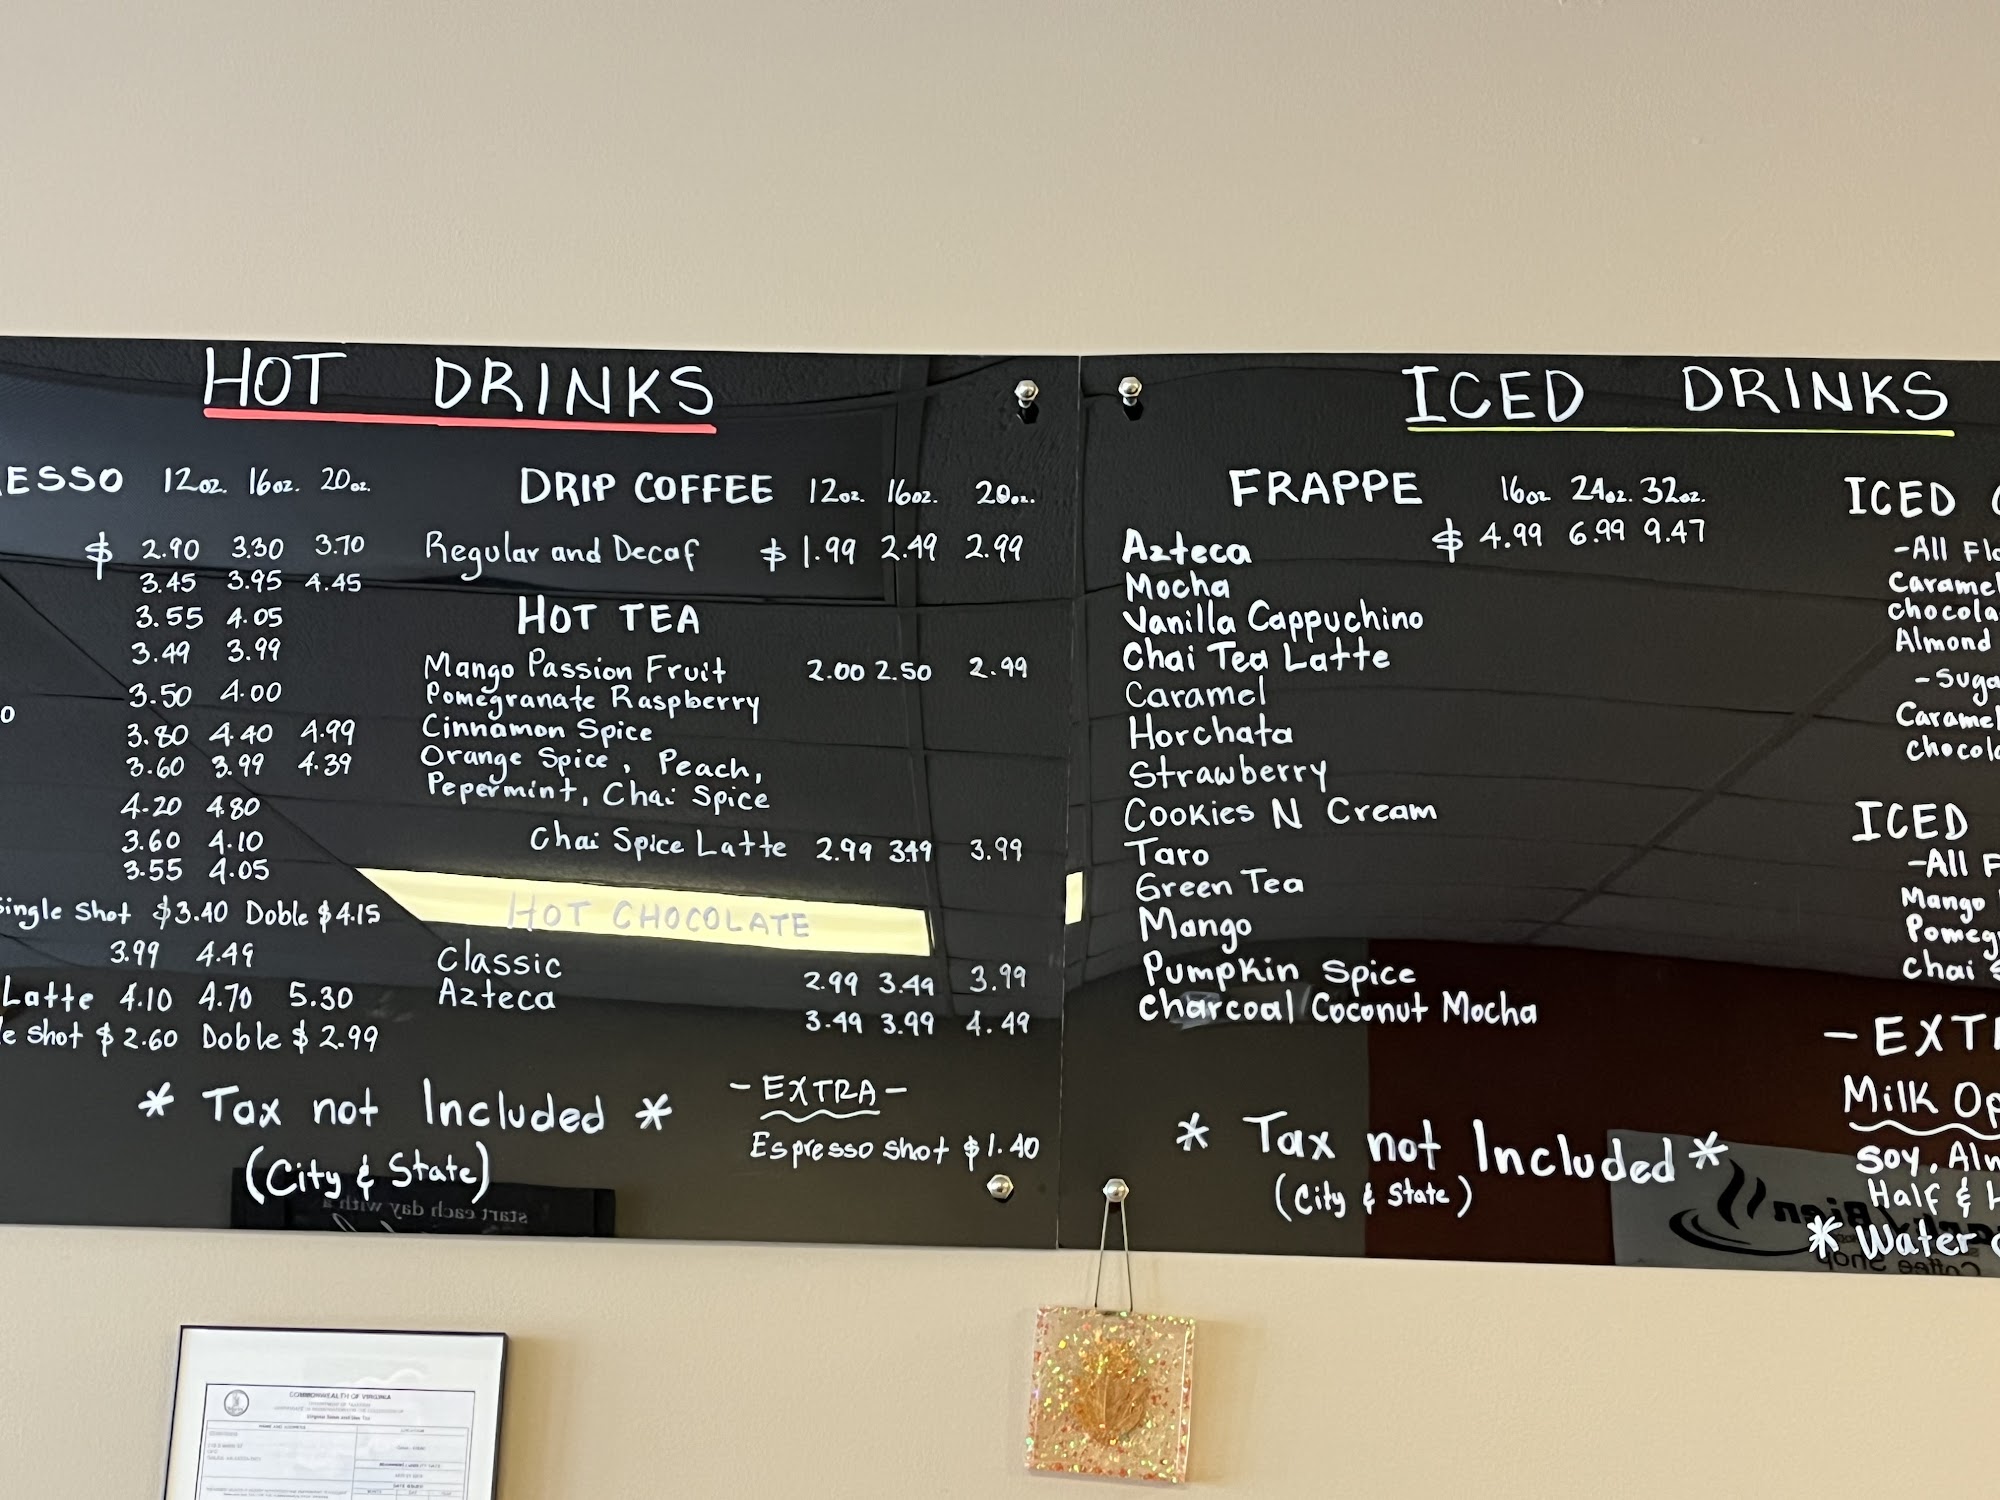 HOT DRINKS
ESSO 12oz. 16oz. 20oz.
$ 2.90 3.30 3.70
3.45 3.95 4.45
3.55 4.05
3.49 3.99
3.50 4.00
3.80 4.40 4.99
3.60 3.99 4.39
4.20 4.80
3.60 4.10
3.55 4.05
Single Shot $3.40 Doble $4.15
3.99 4.49
Latte 4.10 4.70 5.30
e shot $2.60 Doble $2.99
DRIP COFFEE 12oz. 16oz. 20oz.
Regular and Decaf $ 1.99 2.49 2.99
HOT TEA
Mango Passion Fruit 2.00 2.50 2.99
Pomegranate Raspberry
Cinnamon Spice
Orange Spice, Peach,
Pepermint, Chai Spice
Chai Spice Latte 2.99 3.49 3.99
HOT CHOCOLATE
Classic 2.99 3.49 3.99
Azteca 3.49 3.99 4.49
* Tax not Included *
(City & State)
- EXTRA -
Espresso shot $1.40
start each day with a
ICED DRINKS
FRAPPE 16oz 24oz. 32oz.
Azteca $ 4.99 6.99 9.47
Mocha
Vanilla Cappuchino
Chai Tea Latte
Caramel
Horchata
Strawberry
Cookies N Cream
Taro
Green Tea
Mango
Pumpkin Spice
Charcoal Coconut Mocha
* Tax not Included *
(City & State)
ICED
- All Fl
Caramel
chocola
Almond
- Suga
Caramel
chocola
ICED
- All F
Mango
Pomeg
Chai
- EXT
Milk Op
Soy, Alm
Half & H
* Water
Bien
Coffee Shop
COMMONWEALTH OF VIRGINIA